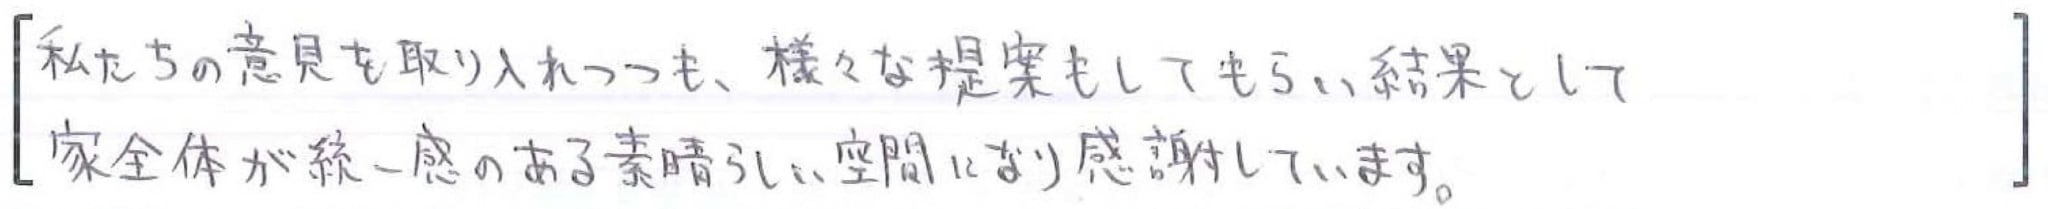 私たちの意見を取り入れつつも、様々な提案もしてもらい結果として
家全体が統一感のある素晴らしい空間になり感謝しています。